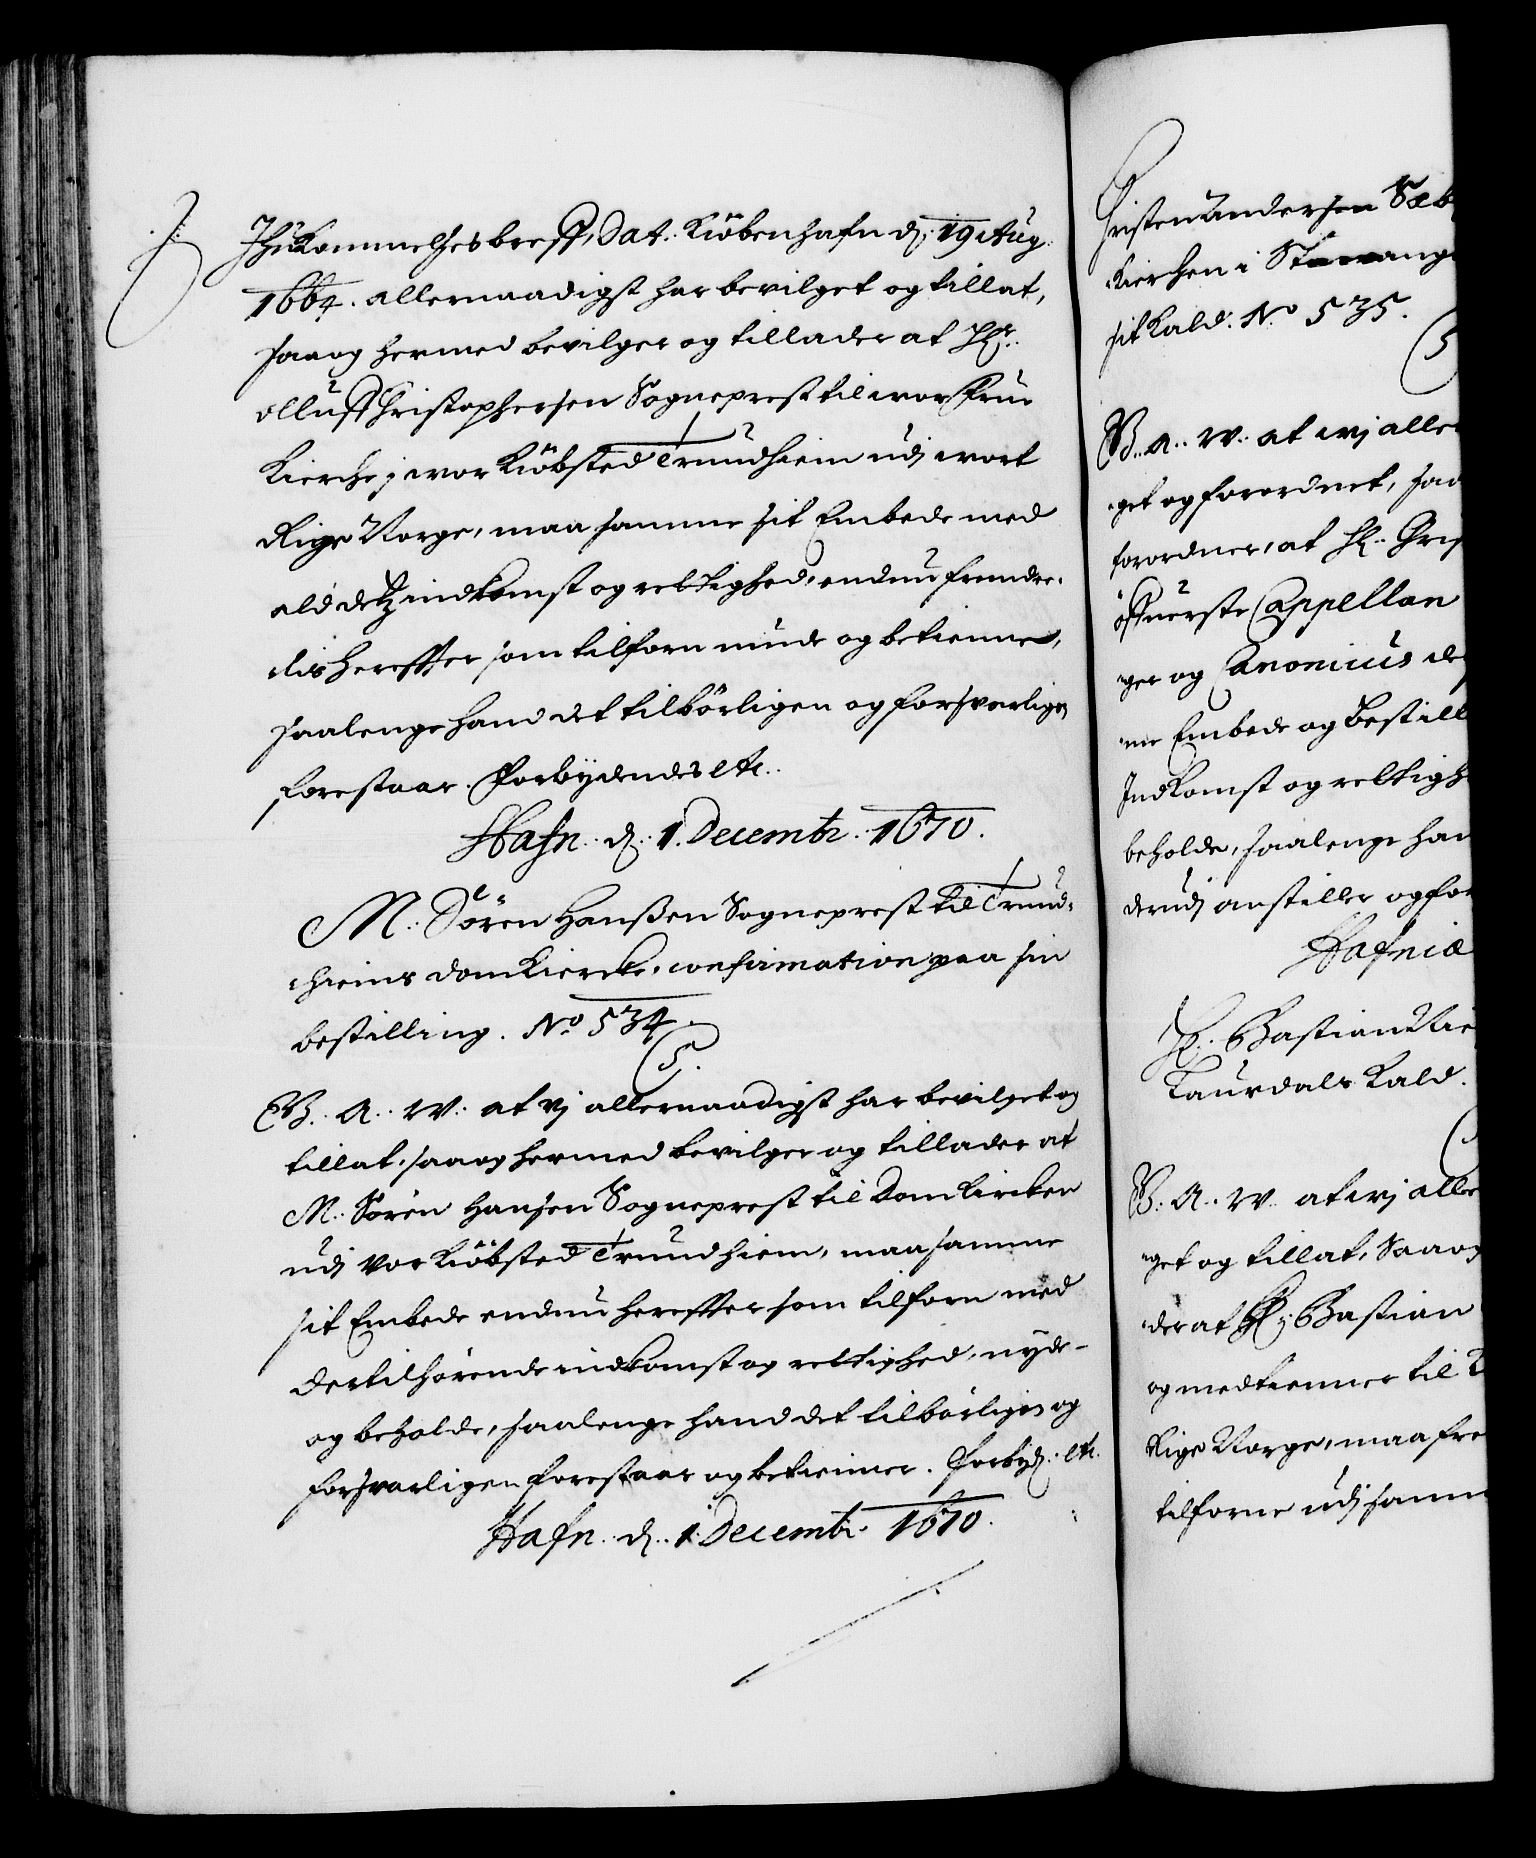 Ihukommelsesbreff, Dat: Kiöbenhafn d: 19 Aug:
1664. allernaadigst har bevilget og tillat,
saa og hermed bevilger og tillader at Hr:
Olluff Christophersen Sogneprest til wor Frue
Kierche j wor Kiöbsted Trundhiem udj wort
Rige Norge, maa samme sit Embede med
ald detz indkomst og rettighed, endnu fremde-
lis herefter som tilforn niude og betienne,
saalenge hand det tilbörligen og forsvarligen
forestaar. Forbydendes etc.
Hafn. d: 1. Decembr: 1670.
M: Sören Hanßen Sogneprest til Trund-
hiems domKiercke, confirmation paa sin
bestilling. No 534.
C5.
G. A. W. at vj allernaadigst har bevilget og
tillat, saa og hermed bevilger og tillader at
M: Sören Hansen Sogneprest til DomKircken
udj vor Kiöbsted Trundhiem, maa samme
sit Embede endnu herefter som tilforn med
dertilhörende indkomst og rettighed, nyde
og beholde, saalenge hand det tilbörligen og
forsvarligen forestaar og betienner. Forbyd: etc.
Hafn. d: 1. Decembr: 1670.
Christen Andersen
Kierchen i Stawang
sit Kald. No 535.
G. A. W. at wj alle
get og forordnet, saa
forordner, at Hr: Chris
öffuerste Cappellan
ger og Canonicus
me Embede og bestill
Indkomst og rettigh
beholde, saalenge han
derudj anstiller og for
Hafniæ
Hr: Bastian
Laurdals Kald.
G. A. W. at wj alle
get og tillat, Saa og
der at Hr: Bastian
og medtienner til
Rige Norge, maa fre
tilforne udj samm